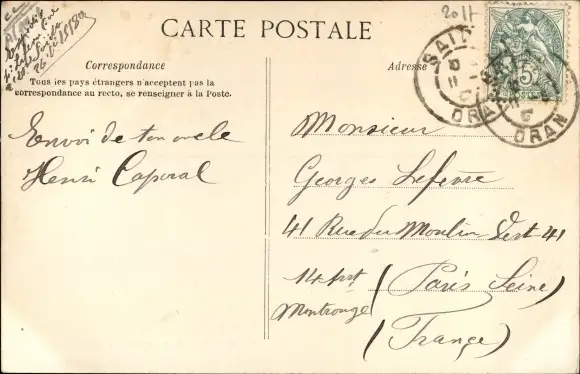 CARTE POSTALE
Correspondance
Tous les pays étrangers n'acceptent pas la
correspondance au recto, se renseigner à la Poste.
Envoi de ton oncle
Henri Caporal
Adresse
5
SAÏ
ORAN
ORAN
Monsieur
Georges Lefèvre
41 Rue du Moulin Vert 41
14 Arrt (Paris Seine)
Montrouge (France)